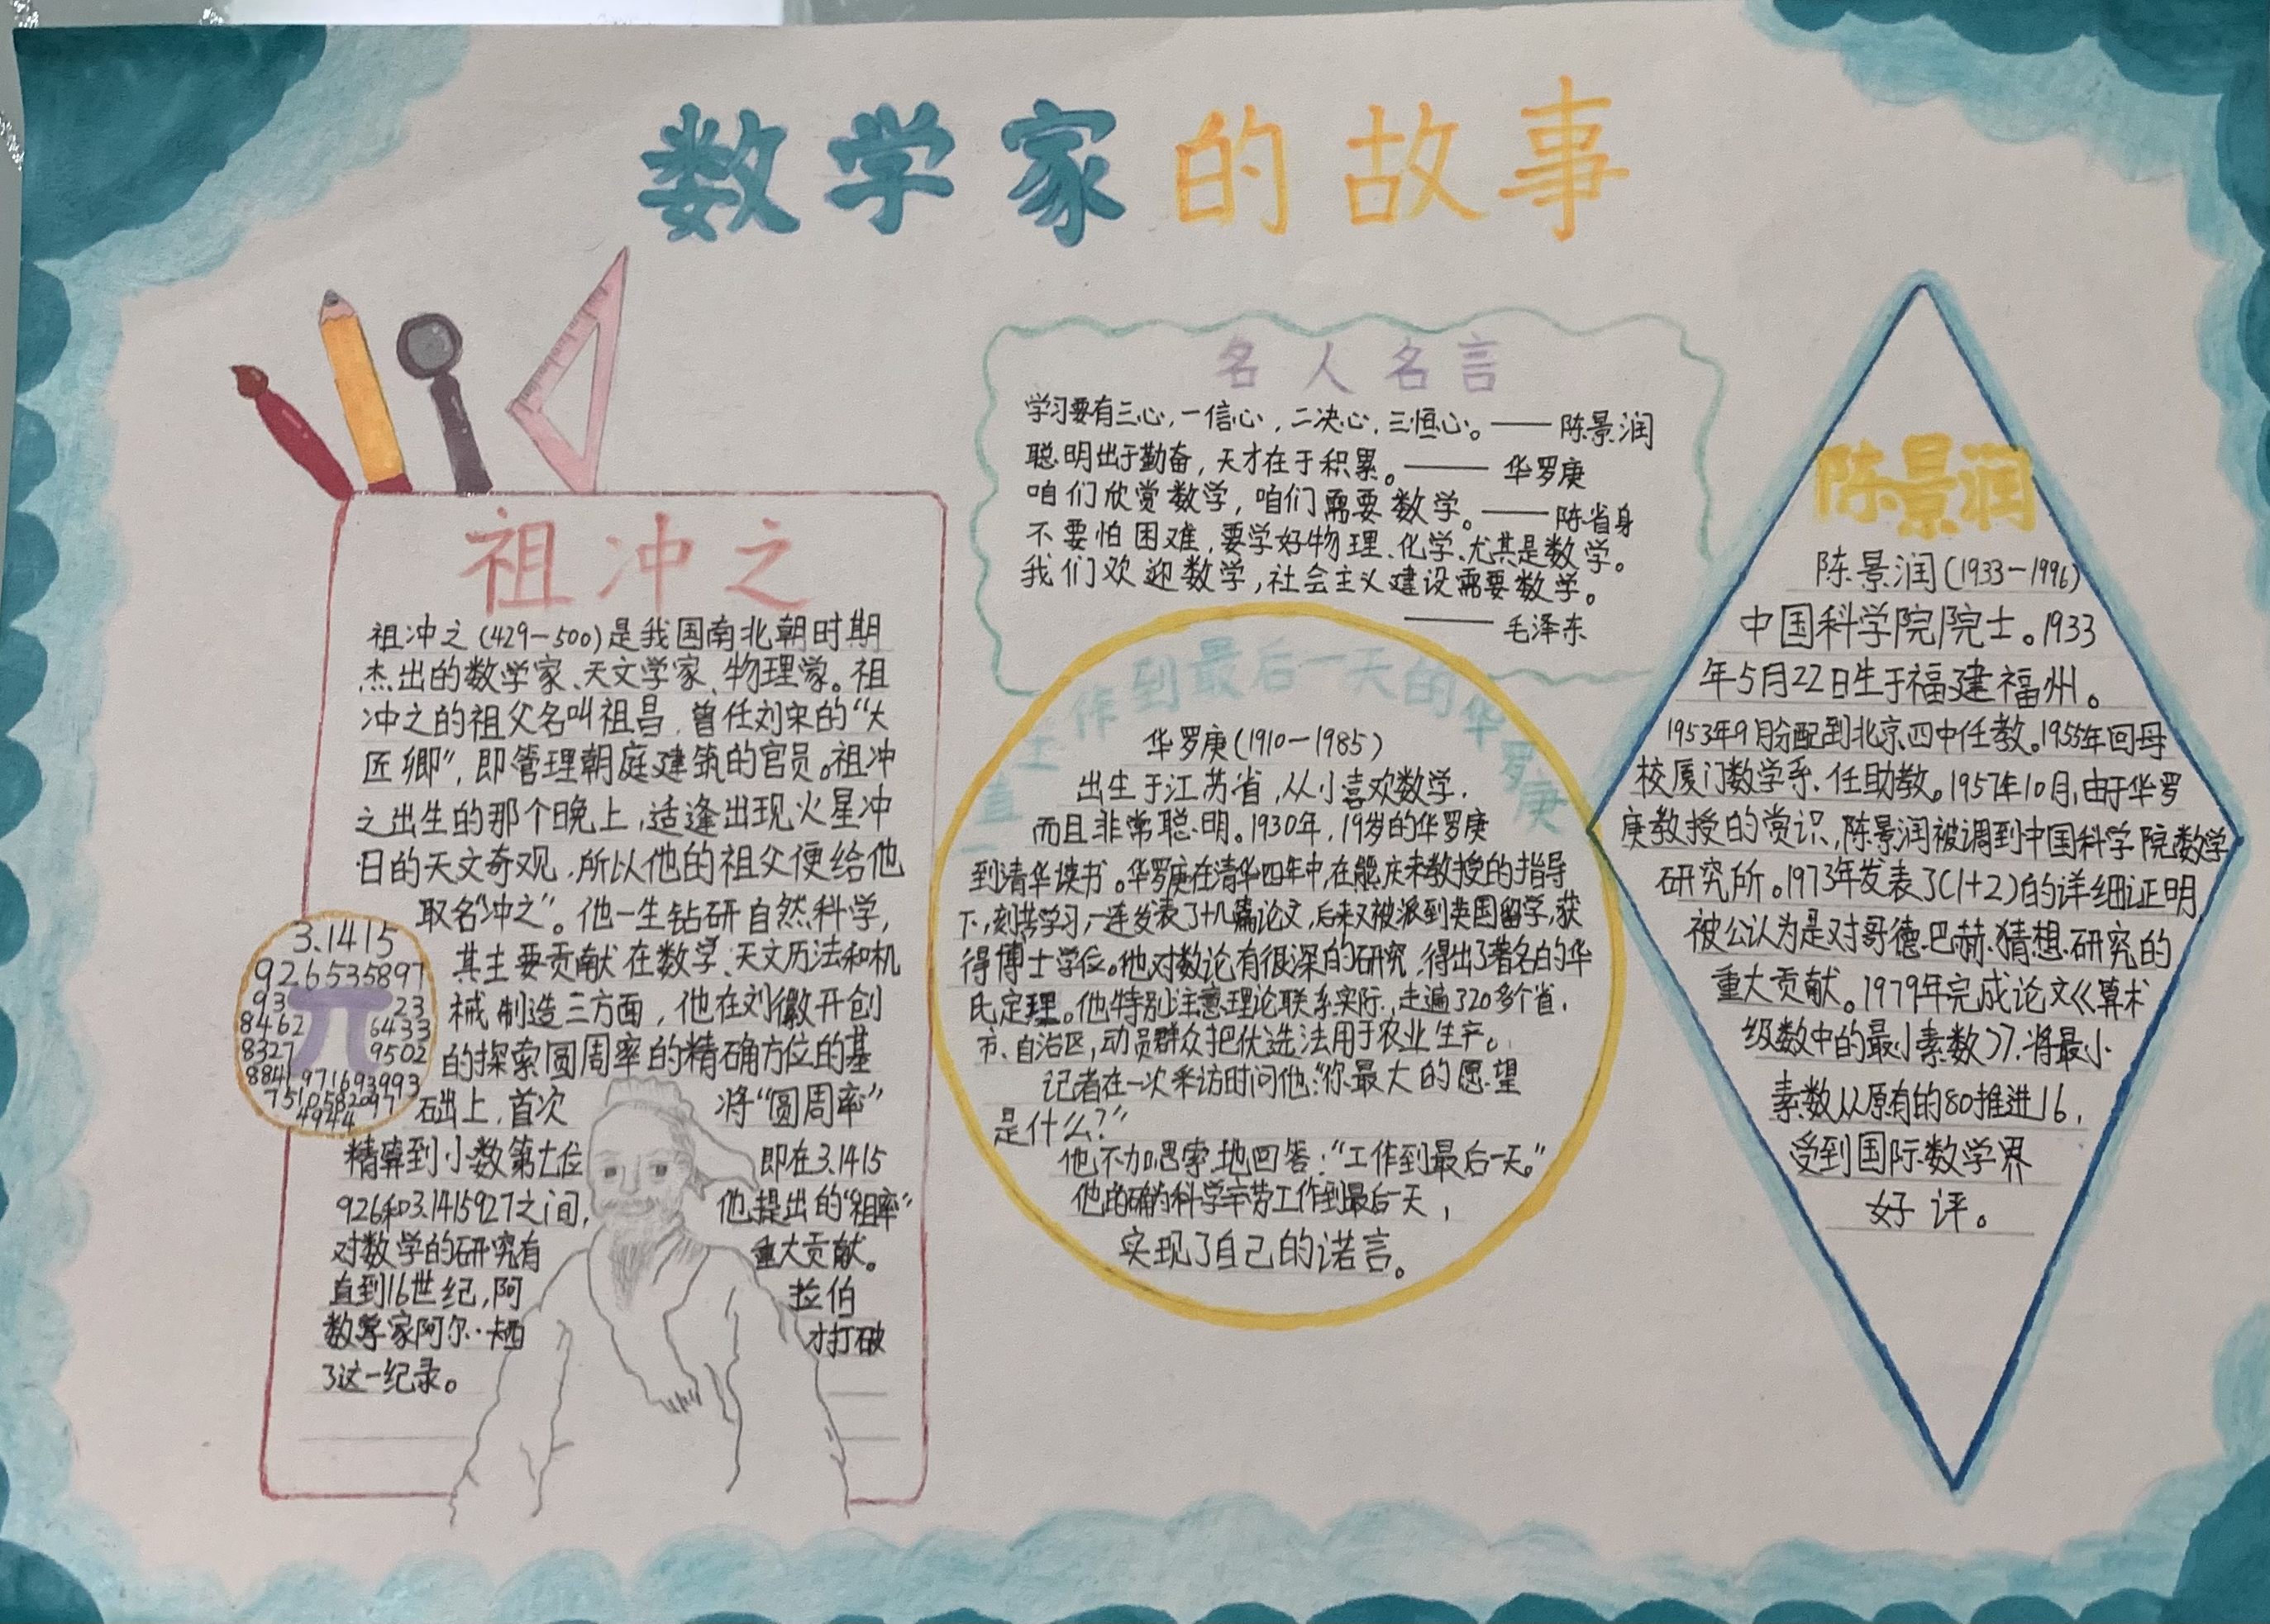 数学家的故事
祖冲之
祖冲之(429—500)是我国南北朝时期
杰出的数学家、天文学家、物理学家。祖
冲之的祖父名叫祖昌,曾任刘宋的“大
匠卿”,即管理朝庭建筑的官员。祖冲
之出生的那个晚上,适逢出现火星冲
日的天文奇观,所以他的祖父便给他
取名“冲之”。他一生钻研自然科学,
其主要贡献在数学、天文历法和机
械制造三方面,他在刘徽开创
的探索圆周率的精确方位的基
础上,首次将“圆周率”
精算到小数第七位即在3.1415
926和3.1415927之间,他提出的“祖率”
对数学的研究有重大贡献。
直到16世纪,阿拉伯
数学家阿尔·卡西才打破
了这一纪录。
3.1415
926535897
93 π 23
8462 6433
8327 9502
8841971693993
751058209
4944
名人名言
学习要有三心,一信心,二决心,三恒心。——陈景润
聪明出于勤奋,天才在于积累。——华罗庚
咱们欣赏数学,咱们需要数学。——陈省身
不要怕困难,要学好物理、化学、尤其是数学。
我们欢迎数学,社会主义建设需要数学。
——毛泽东
一直工作到最后一天的华罗庚
华罗庚(1910—1985)
出生于江苏省,从小喜欢数学,
而且非常聪明。1930年,19岁的华罗庚
到清华读书。华罗庚在清华四年中,在熊庆来教授的指导
下,刻苦学习,一连发表了十几篇论文,后来又被派到英国留学,获
得博士学位。他对数论有很深的研究,得出了著名的华
氏定理。他特别注意理论联系实际,走遍了20多个省,
市、自治区,动员群众把优选法用于农业生产。
记者在一次采访时问他:“你最大的愿望
是什么?”
他不加思索地回答:“工作到最后一天。”
他的确为科学辛劳工作到最后一天,
实现了自己的诺言。
陈景润
陈景润(1933—1996)
中国科学院院士。1933
年5月22日生于福建福州。
1953年9月份配到北京四中任教。1955年回母
校厦门数学系,任助教。1957年10月,由于华罗
庚教授的赏识,陈景润被调到中国科学院数学
研究所。1973年发表了(1+2)的详细证明
被公认为是对哥德巴赫猜想研究的
重大贡献。1979年完成论文《算术
级数中的最小素数》,将最小
素数从原有的80推进16,
受到国际数学界
好评。